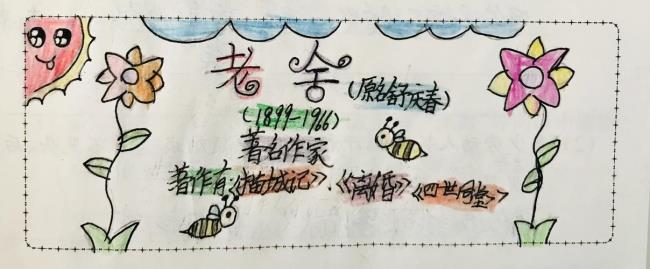 老舍
(原名舒庆春)
(1899-1966)
著名作家
著作有《猫城记》、《离婚》《四世同堂》